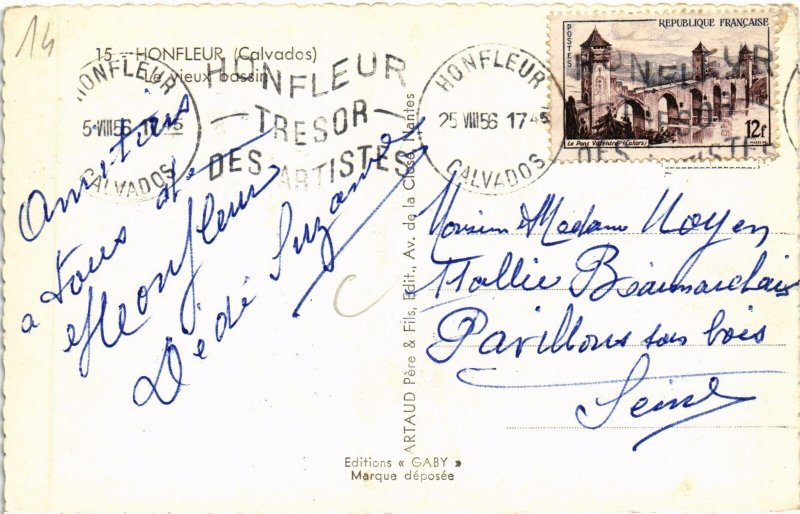 14
15 - HONFLEUR (Calvados)
Le vieux bassin
HONFLEUR
5·VIII 56 17 45
CALVADOS
HONFLEUR
TRESOR
DES ARTISTES
HONFLEUR
25 VIII 56 17 45
CALVADOS
HONFLEUR
TRESOR
DES ARTISTES
POSTES
REPUBLIQUE FRANÇAISE
12F
Le Pont Valentré (Cahors)
Amitiés
a tous de
Honfleur
Dédé Suzanne
ARTAUD Père & Fils, Edit., Av. de la Close, Nantes
Monsieur Madame Noyen
Allée Beaumarchais
Pavillons sous bois
Seine
Editions « GABY »
Marque déposée